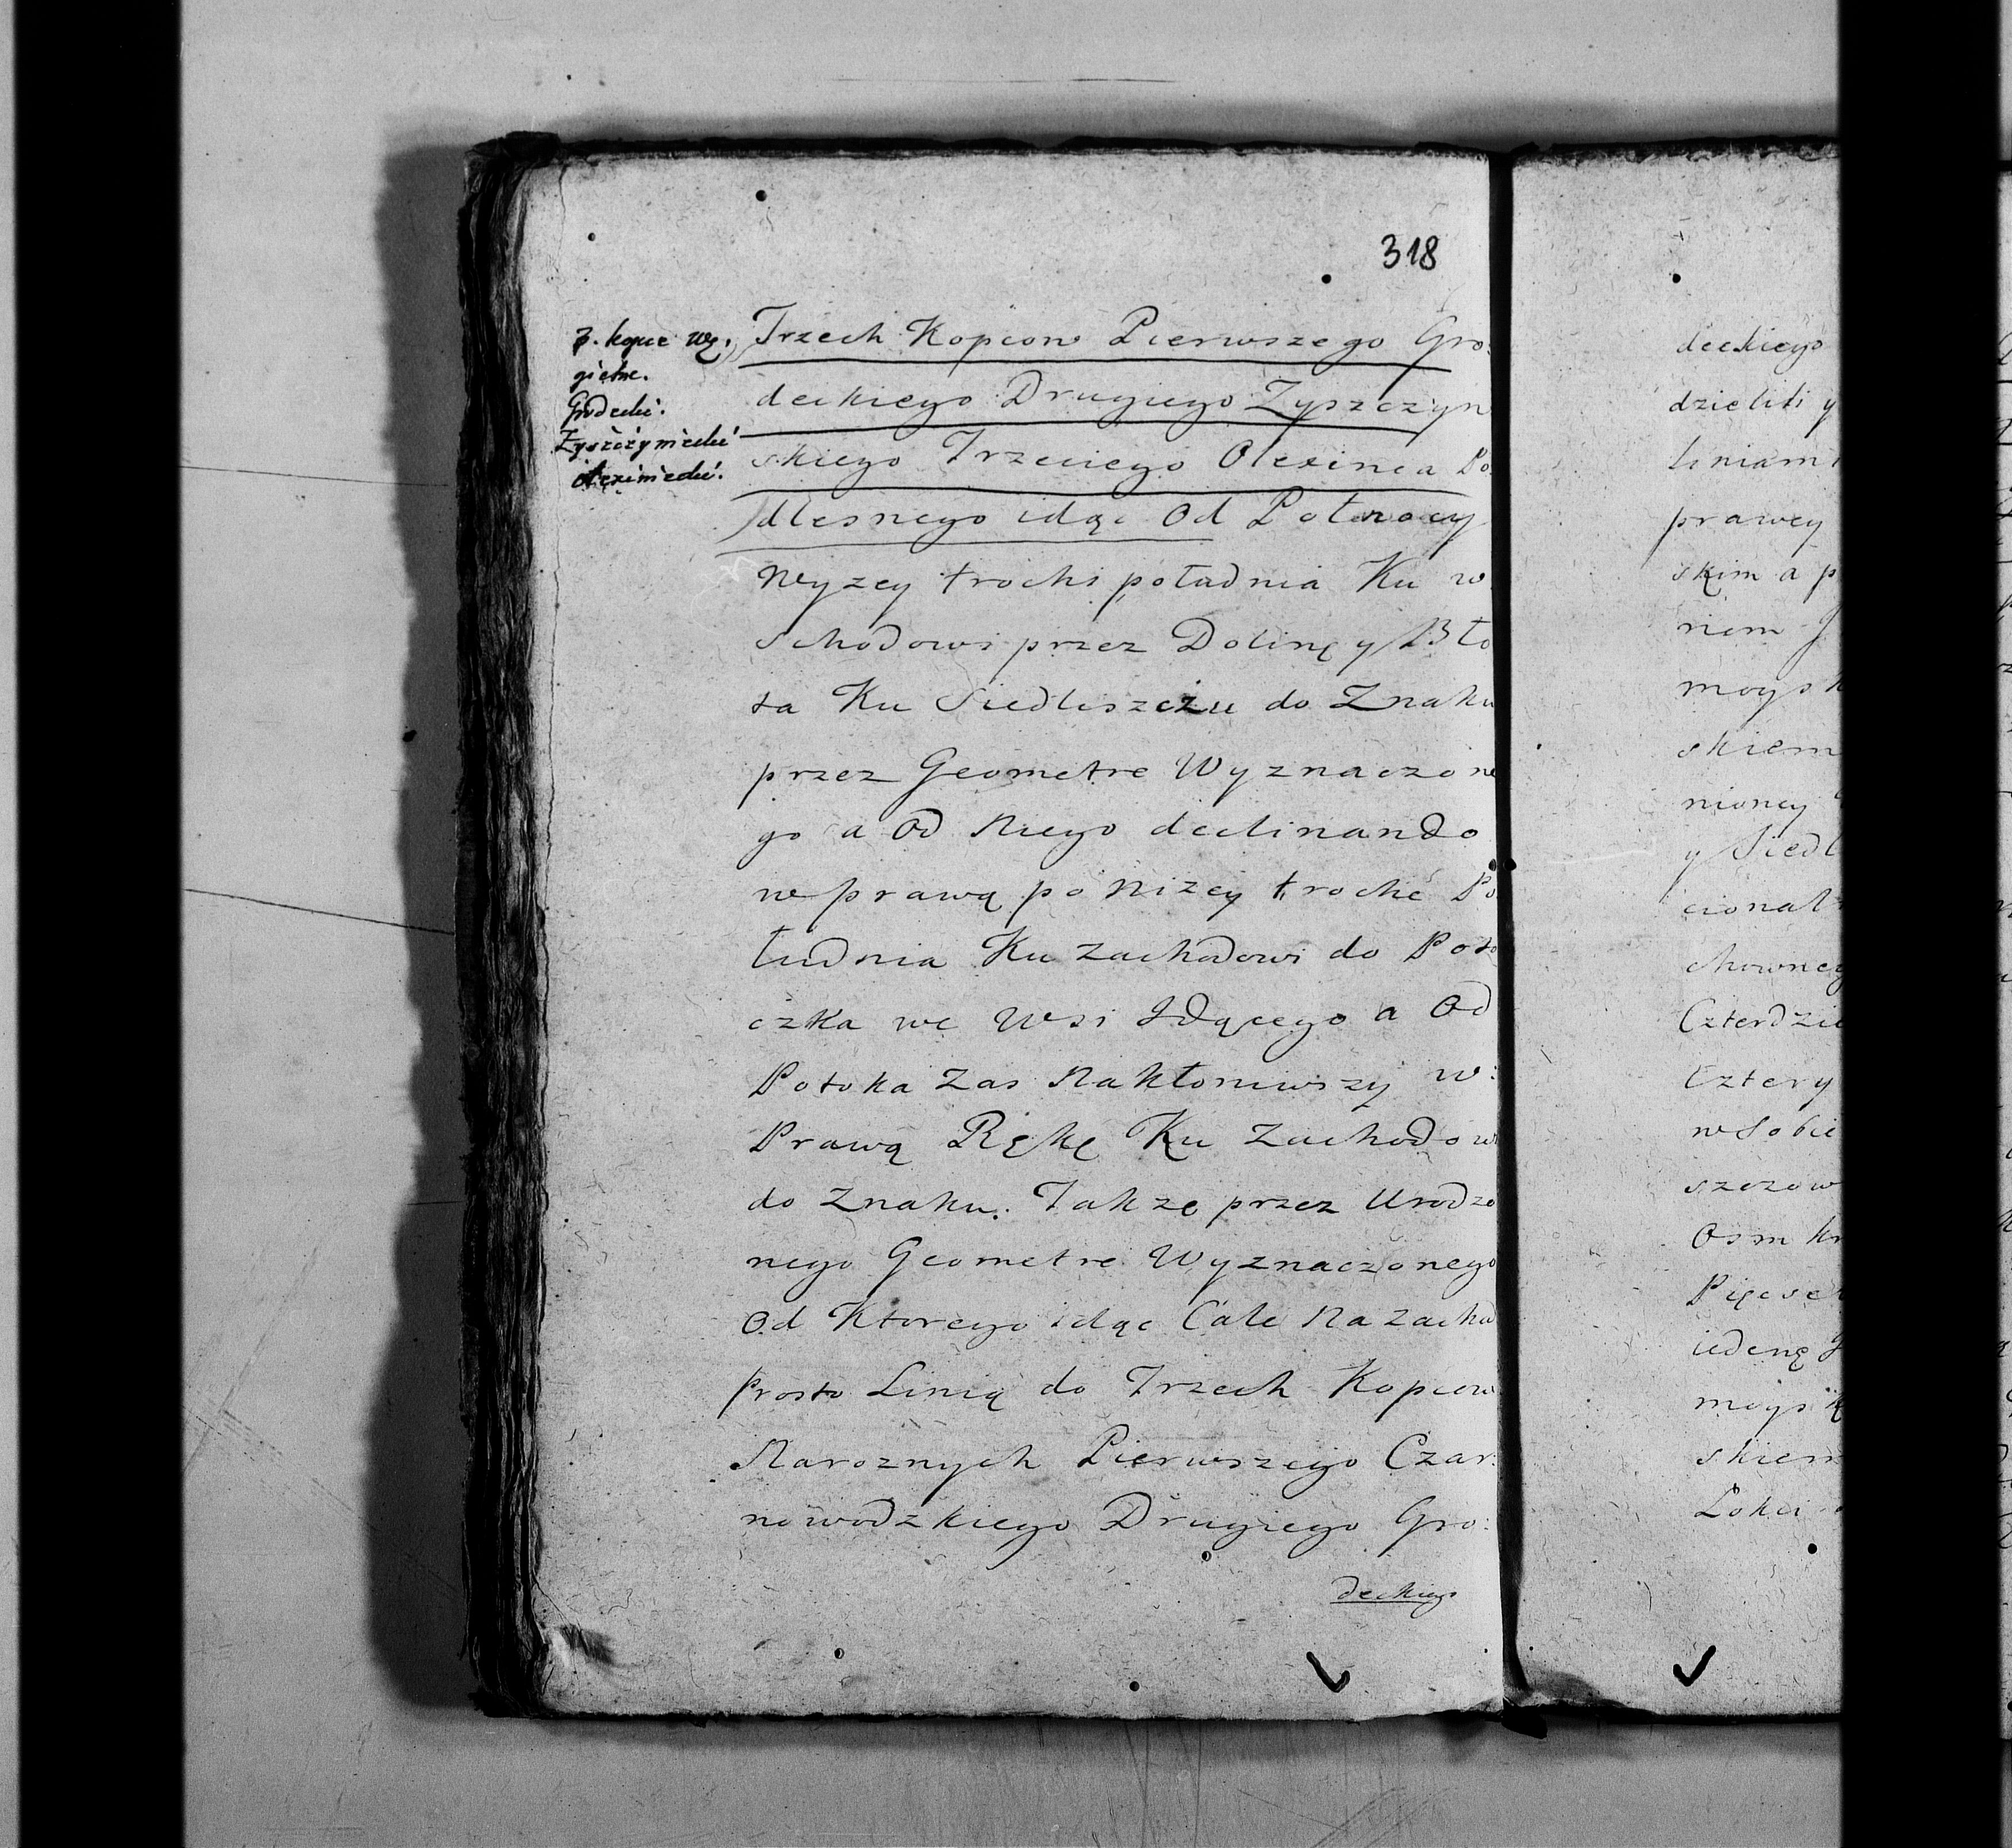 318
3. kopce wę,
gielne.
Grodecki.
Zyszczyniecki
Trzech Kopcow Pierwszego Gro:
deckiego Drugiego Zyszczyn
skiego Trzeciego Olexinca Po:
dlesnego idąc Od Połnocy
Wyzey trochi południa Ku w
schodowi przez Dolinę y Bło
ta Ku Siedliszczu do Znaku
przez Geometre Wyznaczone
go a Od Niego declinando
w prawą po Nizey troche Po
łudnia Ku Zachodowi do Poto
czka we Wsi Jdącego a Od
Potoka Zas Nakłoniwszy w:
Prawą Rękę Ku Zachodow
do Znaku. Takze przez Urodzo
nego Geometre Wyznaczonego
Od Ktorego idąc Cale Na Zachod
Prosto Linią do Trzech Kopcow
Naroznych Pierwszego Czar:
nowodzkiego Drugiego Gro:
deckiego
deckiego
dzielili y
Liniami
prawey
skim a p
niem J
moysk
skiem
nioney
y Siedl
cional
chowney
Czterdzie
Cztery
w Sobie
szczow
Osm kr
Pięcset
iedenę J
moys
skiem
Łokci